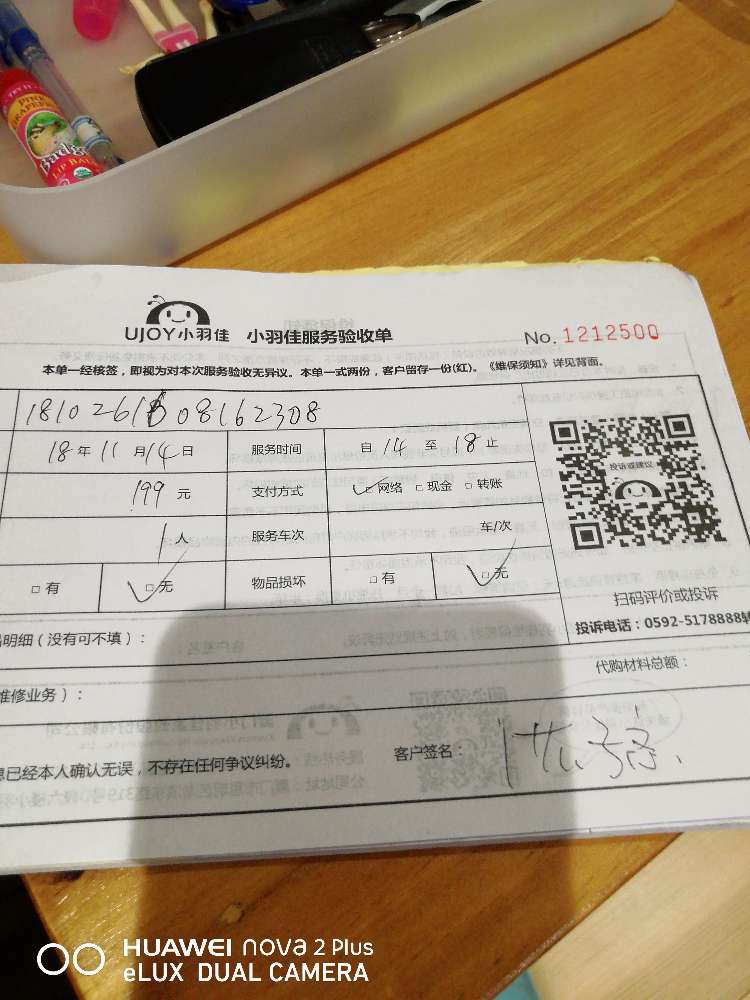 PINK
GRAPEFRUIT
Badger
LIP BALM
UJOY小羽佳 小羽佳服务验收单 No. 1212500
本单一经核签，即视为对本次服务验收无异议。本单一式两份，客户留存一份(红)。《维保须知》详见背面。
18年11月14日 服务时间 自14至18止
投诉或建议
199元 支付方式 □网络 □现金 □转账
1人 服务车次 车/次
□有 □无 物品损坏 □有 □无
扫码评价或投诉
明细（没有可不填）： 投诉电话：0592-5178888转
代购材料总额：
维修业务）：
息已经本人确认无误，不存在任何争议纠纷。 客户签名：
HUAWEI nova 2 Plus
eLUX DUAL CAMERA